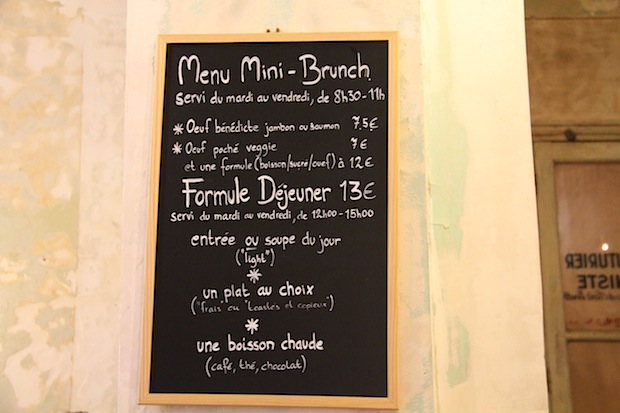 Menu Mini-Brunch
Servi du mardi au vendredi, de 8h30-11h
* Oeuf bénédicte jambon ou saumon 7.5€
* Oeuf poché veggie 7€
et une formule (boisson/sucré/oeuf) à 12€
Formule Déjeuner 13€
Servi du mardi au vendredi, de 12h00-15h00
entrée ou soupe du jour
("light")
*
un plat au choix
("frais" ou "toastés et copieux")
*
une boisson chaude
(café, thé, chocolat)
UTURIER
NISTE